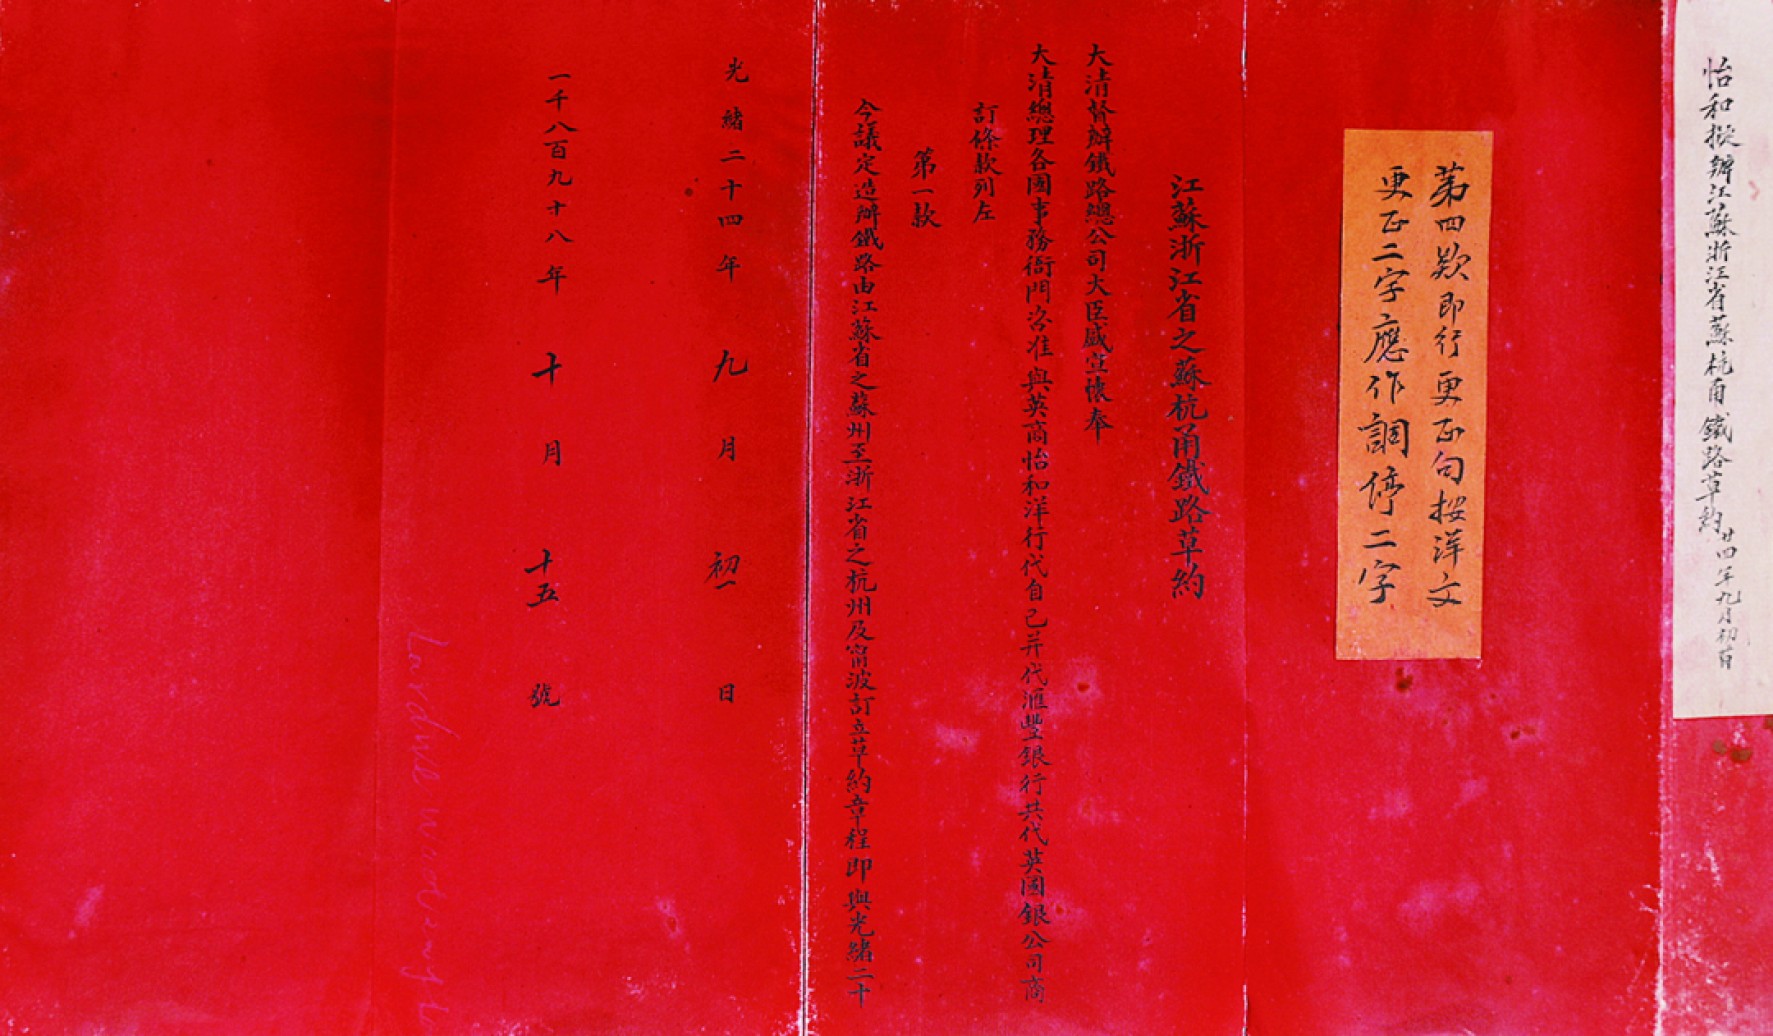 怡和擬辦江蘇浙江省蘇杭甬鐵路草約廿四年九月初一日
第四款即行更正句按洋文
更正二字應作調停二字
江蘇浙江省之蘇杭甬鐵路草約
大清督辦鐵路總公司大臣盛宣懷奉
大清總理各國事務衙門咨准與英商怡和洋行代自己并代滙豐銀行共代英國銀公司商
訂條款列左
第一款
今議定造辦鐵路由江蘇省之蘇州至浙江省之杭州及甯波訂立草約章程即與光緒二十
光緒二十四年九月初一日
一千八百九十八年十月十五號